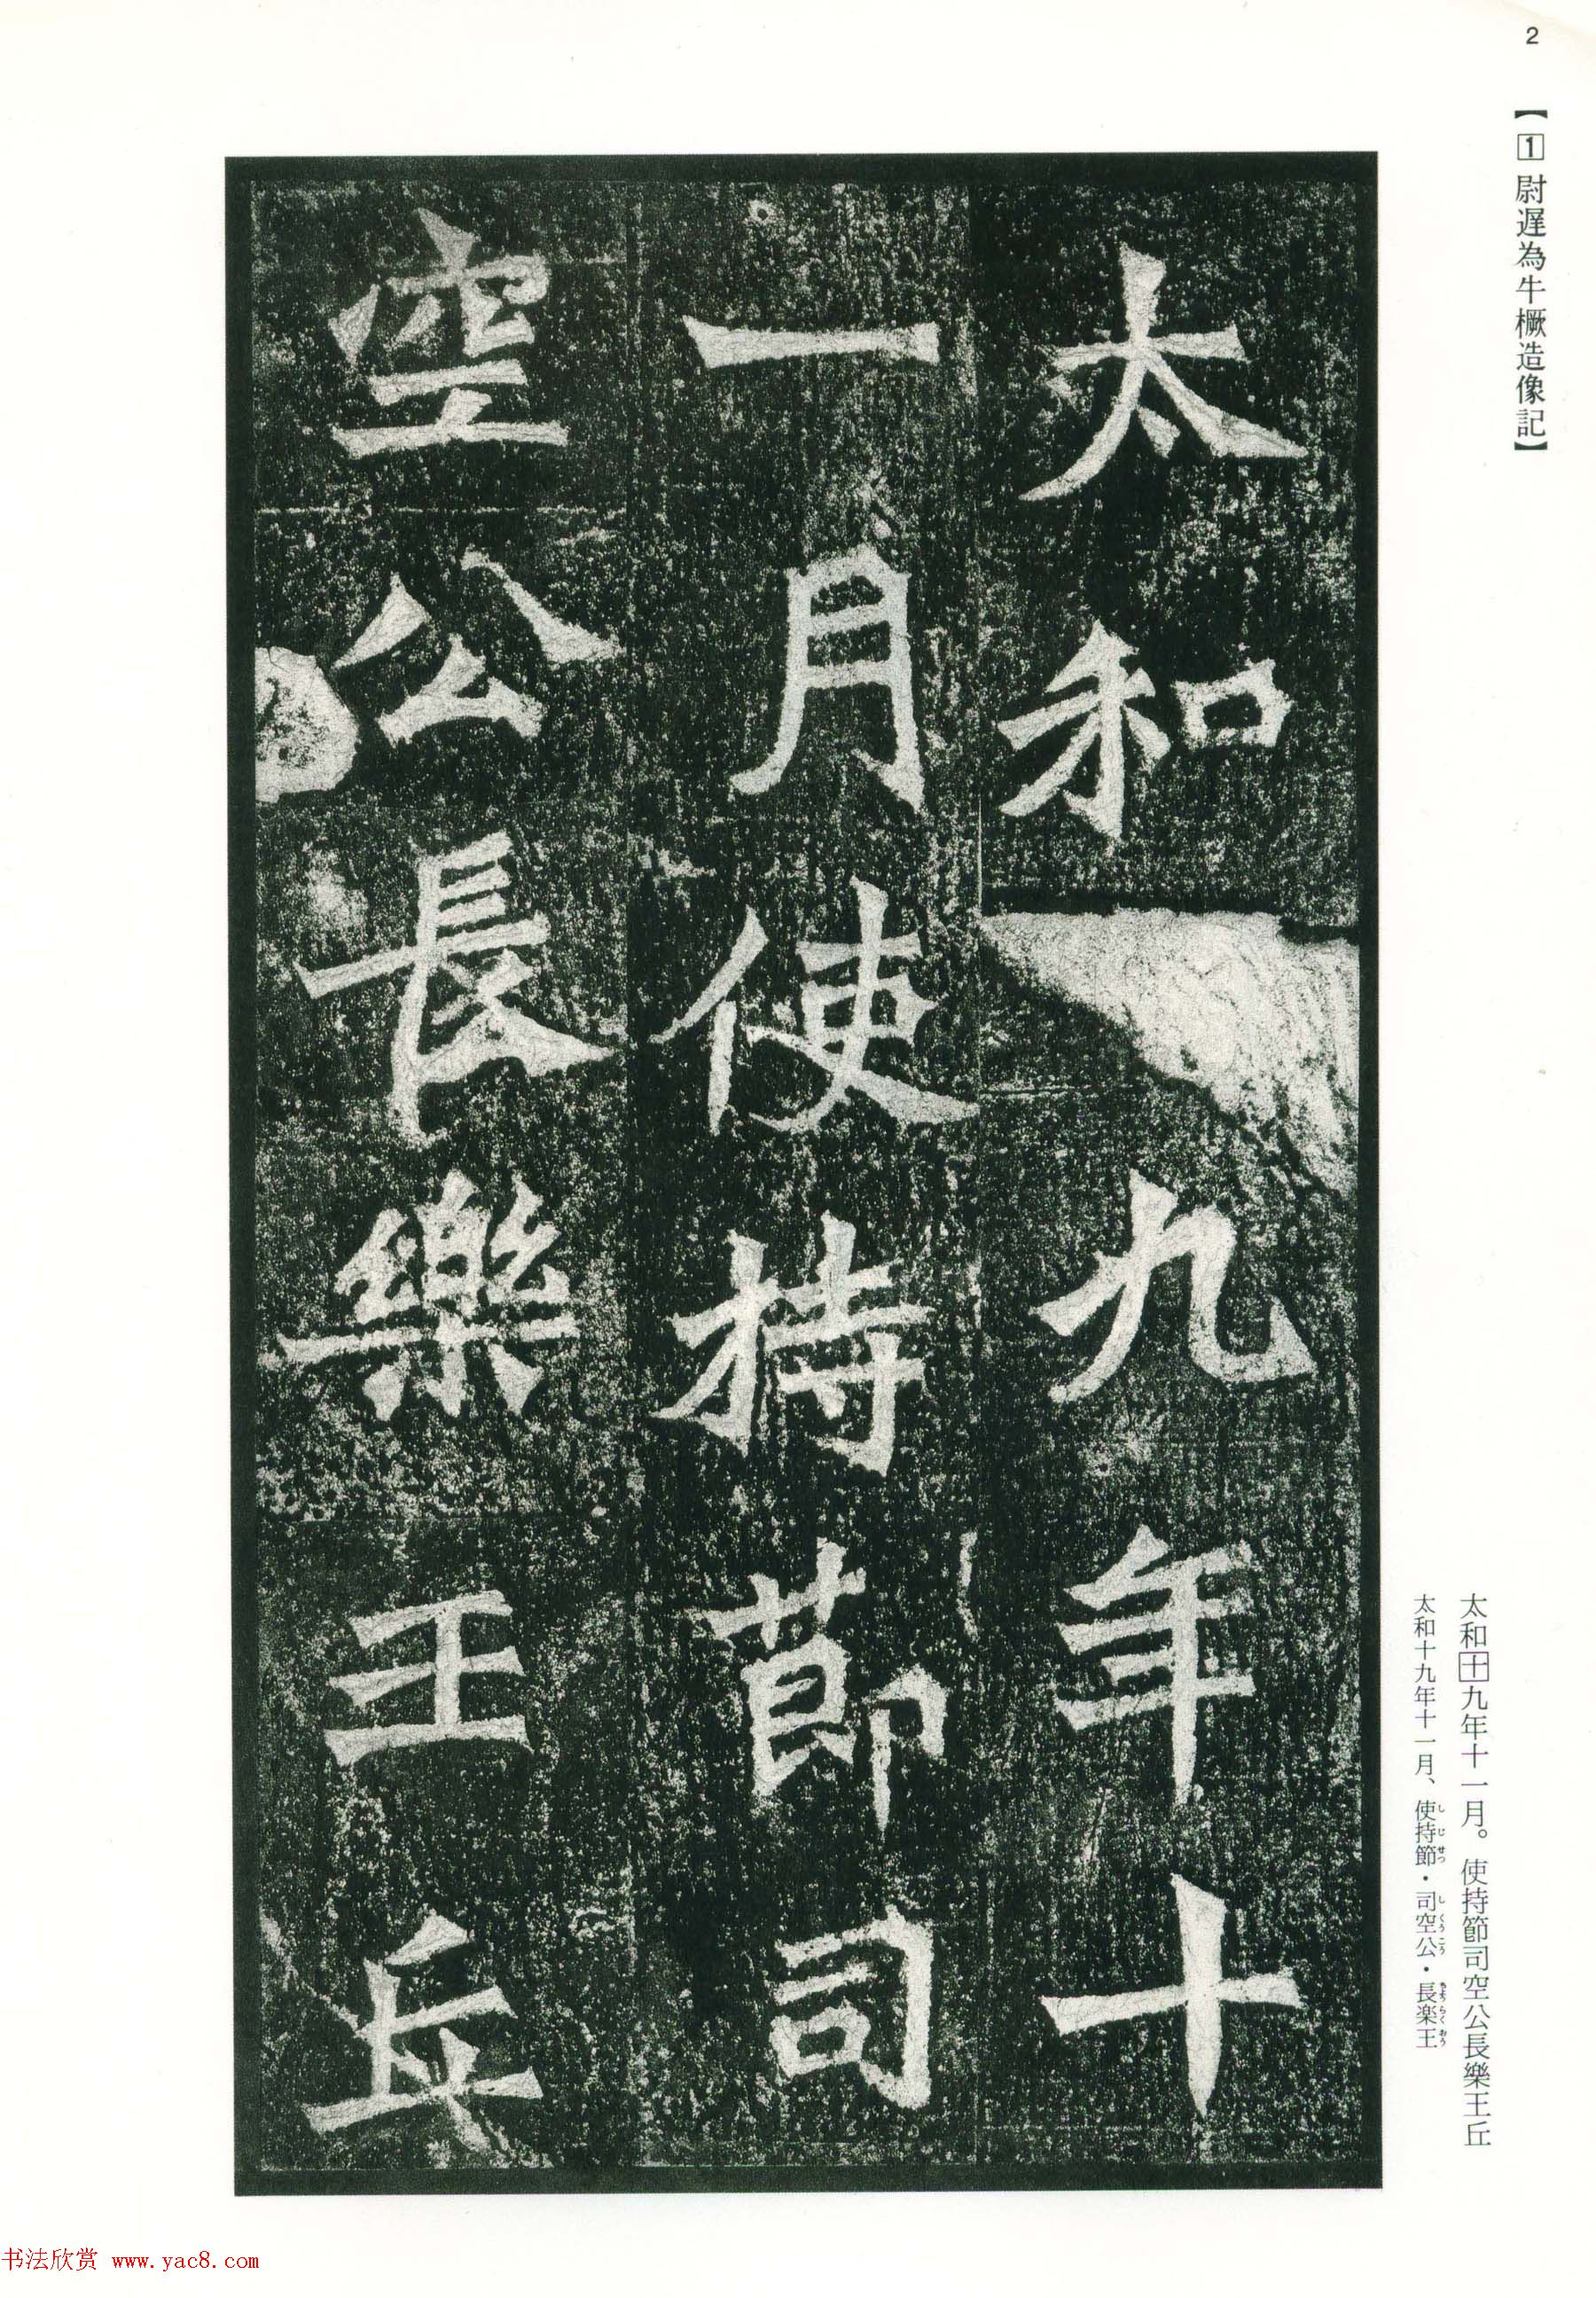 2
【1 尉遅為牛橛造像記】
太和九年十
一月使持節司
空公長樂王丘
太和十九年十一月。使持節司空公長樂王丘
太和十九年十一月、使持節・司空公・長楽王
しじせつ しくうこう ちょうらくおう
书法欣赏 www.yac8.com